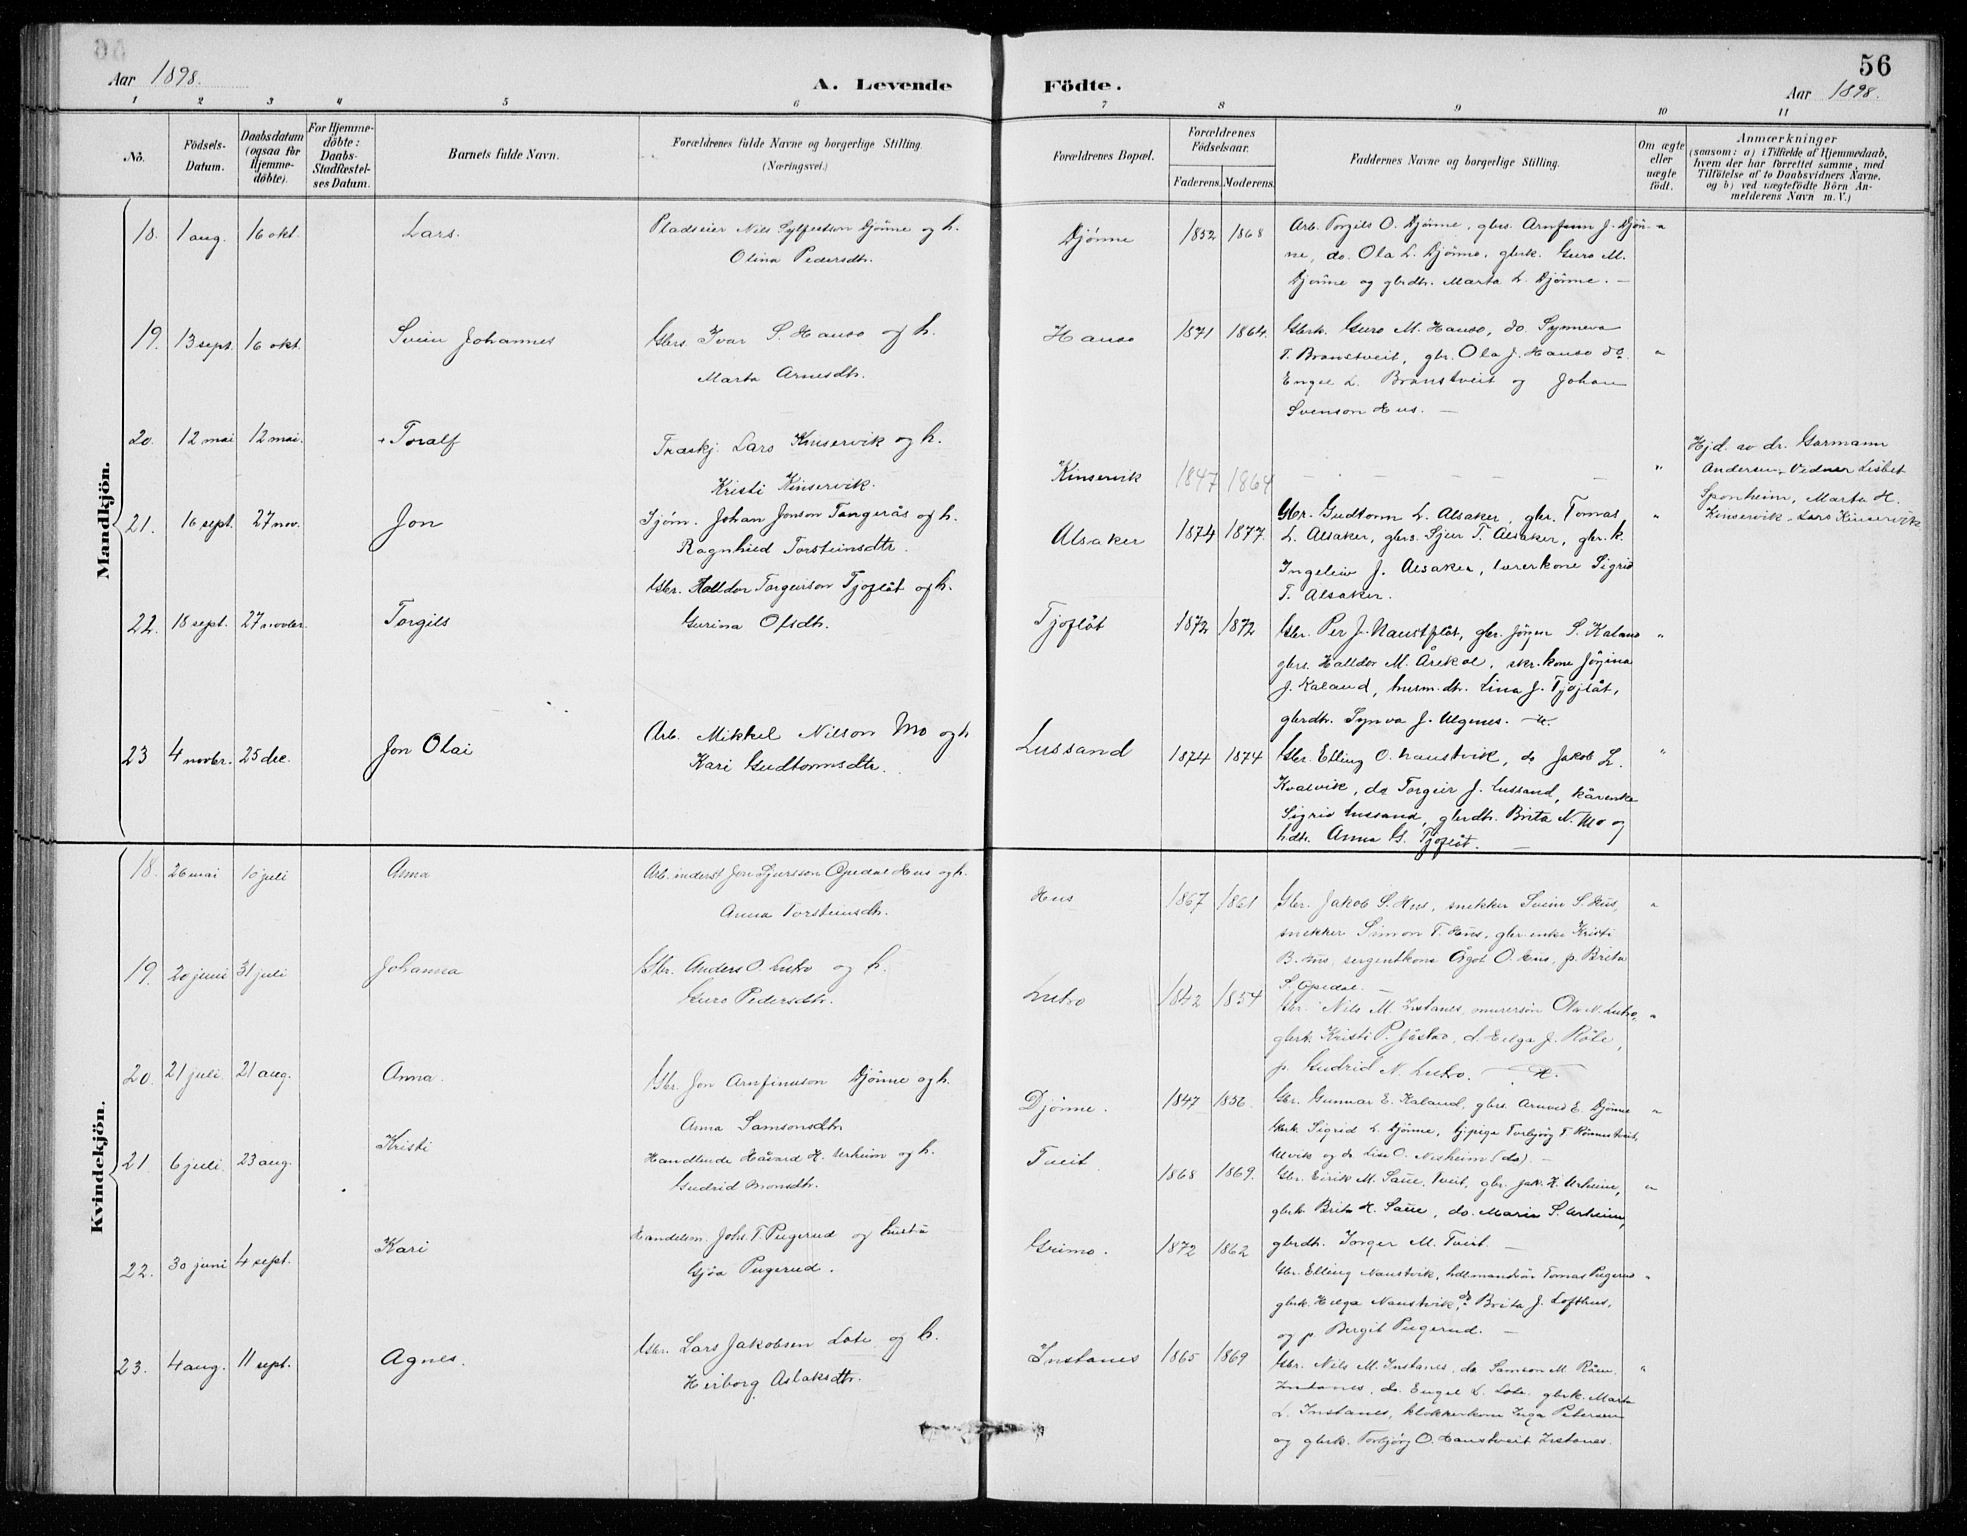 56
Aar 1898.
A. Levende Födte.
Aar 1898.
1 2 3 4 5 6 7 8 9 10 11
No.
Födsels-Datum.
Daabsdatum (ogsaa for Hjemmedöbte).
For Hjemmedöbte: Daabs-Stadfæstelses Datum.
Barnets fulde Navn.
Forældrenes fulde Navne og borgerlige Stilling.
(Næringsvei.)
Forældrenes Bopæl.
Forældrenes Födselsaar.
Faderens. Moderens.
Faddernes Navne og borgerlige Stilling.
Om ægte eller uægte födt.
Anmærkninger
(saasom: a) i Tilfælde af Hjemmedaab, hvem der har forrettet samme, med Tilföielse af to Daabsvidners Navne, og b) ved uægtefödte Börn Anmelderens Navn m. V.)
Mandkjön.
18. 1 aug. 16 okt. Lars. Pladseier Nils Sylfestson Djönne og h.
Olina Pedersdtr.
Djönne 1852 1868
Arb. Torgils O. Djönne, gbrs. Arnfinn J. Djön-
ne, do. Ola L. Djönne, gbrk. Guro M.
Djönne og gbrdtr. Marta L. Djönne. —
19. 13 sept. 16 okt. Svein Johannes Gbrs. Ivar S. Hauso og h.
Marta Arnesdtr.
Hauso 1871 1864.
Gbrk. Guro M. Hauso, do. Synneva
T. Bränstveit, gbr. Ola J. Hauso do.
Engel L. Bränstveit og Johan
Svenson Hus. —
20. 12 mai 12 mai. + Toralf Træskj. Lars Kinservik og h.
Kristi Kinservik.
Kinservik 1847 1864
Hjd. av dr. Garmann
Andersen, Vedner Lisbet
Sponheim, Marta H.
Kinservik, Lars Kinservik
21. 16 sept. 27 nov. Jon Sjöm. Johan Jonson Tangerås og h.
Ragnhild Torsteinsdtr.
Alsaker 1874 1877.
Gbr. Gudtorm L. Alsaker, gbr. Tomas
L. Alsaker, gbrs. Sjur T. Alsaker, gbr.k.
Ingeleiv J. Alsaker, lærerkone Sigrid
T. Alsaker.
22. 18 sept. 27 novbr. Torgils Gbr. Halldor Torgeirson Tjoflåt og h.
Gurina Olsdtr.
Tjoflåt 1872 1872
Gbr. Per J. Naustflåt, gbr. Jörgen S. Kaland
gbrs. Halldor M. Årekol, skr.kone Jörgina
J. Kaland, husm.dtr. Lina J. Tjoflåt,
gbrdtr. Synva J. Ulgenes. —
23 4 novbr. 25 dec. Jon Olai Arb. Mikkel Nilson Mo og h
Kari Gudtormsdtr.
Lussand 1874 1874
Gbr. Elling O. Naustvik, do Jakob L.
Kvalvik, do Torgeir J. Lussand, kårenke
Sigrid Lussand, gbrdtr. Brita N. Mo og
hdtr. Anna G. Tjoflåt. —
Kvindekjön.
18. 26 mai 10 juli Anna Arb. inderst Jon Sjursson Opedal Hus og h.
Anna Torsteinsdtr.
Hus 1867 1861
Gbr. Jakob S. Hus, snekker Svein S. Hus,
snekker Simon T. Hus, gbr.enke Kristi
B. Hus, sergentkone Ågot O. Hus, p. Brita
S. Opedal. —
19. 20 juni 31 juli Johanna Gbr. Anders O. Lutro og h.
Guro Pedersdtr.
Lutro 1842 1854
Gbr. Nils M. Instanes, murersön Ola N. Lutro,
gbrk. Kristi P. Jåstad, d. Helga J. Höle,
p. Gudrid N. Lutro. —
20. 21 juli 21 aug. Anna. Gbr. Jon Arnfinnson Djönne og h.
Anna Samsonsdtr
Djönne. 1847 1856.
Gbr. Gunnar E. Kaland, gbrs. Arnved E. Djönne
Gbrk. Sigrid L. Djönne, tjpige Torbjörg T. Rönnestveit,
Ulvik og do Lisa O. Nesheim (do). —
21. 6 juli 23 aug. Kristi Handlende Håvard H. Urheim og h.
Gudrid Monsdtr.
Tveit. 1868 1869.
Gbr. Eirik M. Saue, Tveit, gbr. Jak. H. Urheim,
gbrk. Brita H. Saue, do. Maria S. Urheim,
gbrdtr. Inger M. Tveit. —
22. 30 juni 4 sept. Kari Handelsm. Johs. T. Pugerud og hustu
Gjöa Pugerud.
Grimo. 1872 1862
Gbr. Elling Naustvik, hdlmandsön Tomas Pugerud
gbrk. Helga Naustvik, do Brita J. Lofthus,
og p. Bergit Pugerud. —
23. 4 aug. 11 sept. Agnes. Gbr. Lars Jakobsen Lote og h.
Herborg Aslaksdtr.
Instanes 1865 1869
Gbr. Nils M. Instanes, do Samson M. Råen
Instanes, do. Engel L. Lote, gbrk. Marta
L. Instanes, klokkerkone Inga Petersen
og gbrk. Torbjörg O. Hanstveit Instanes.